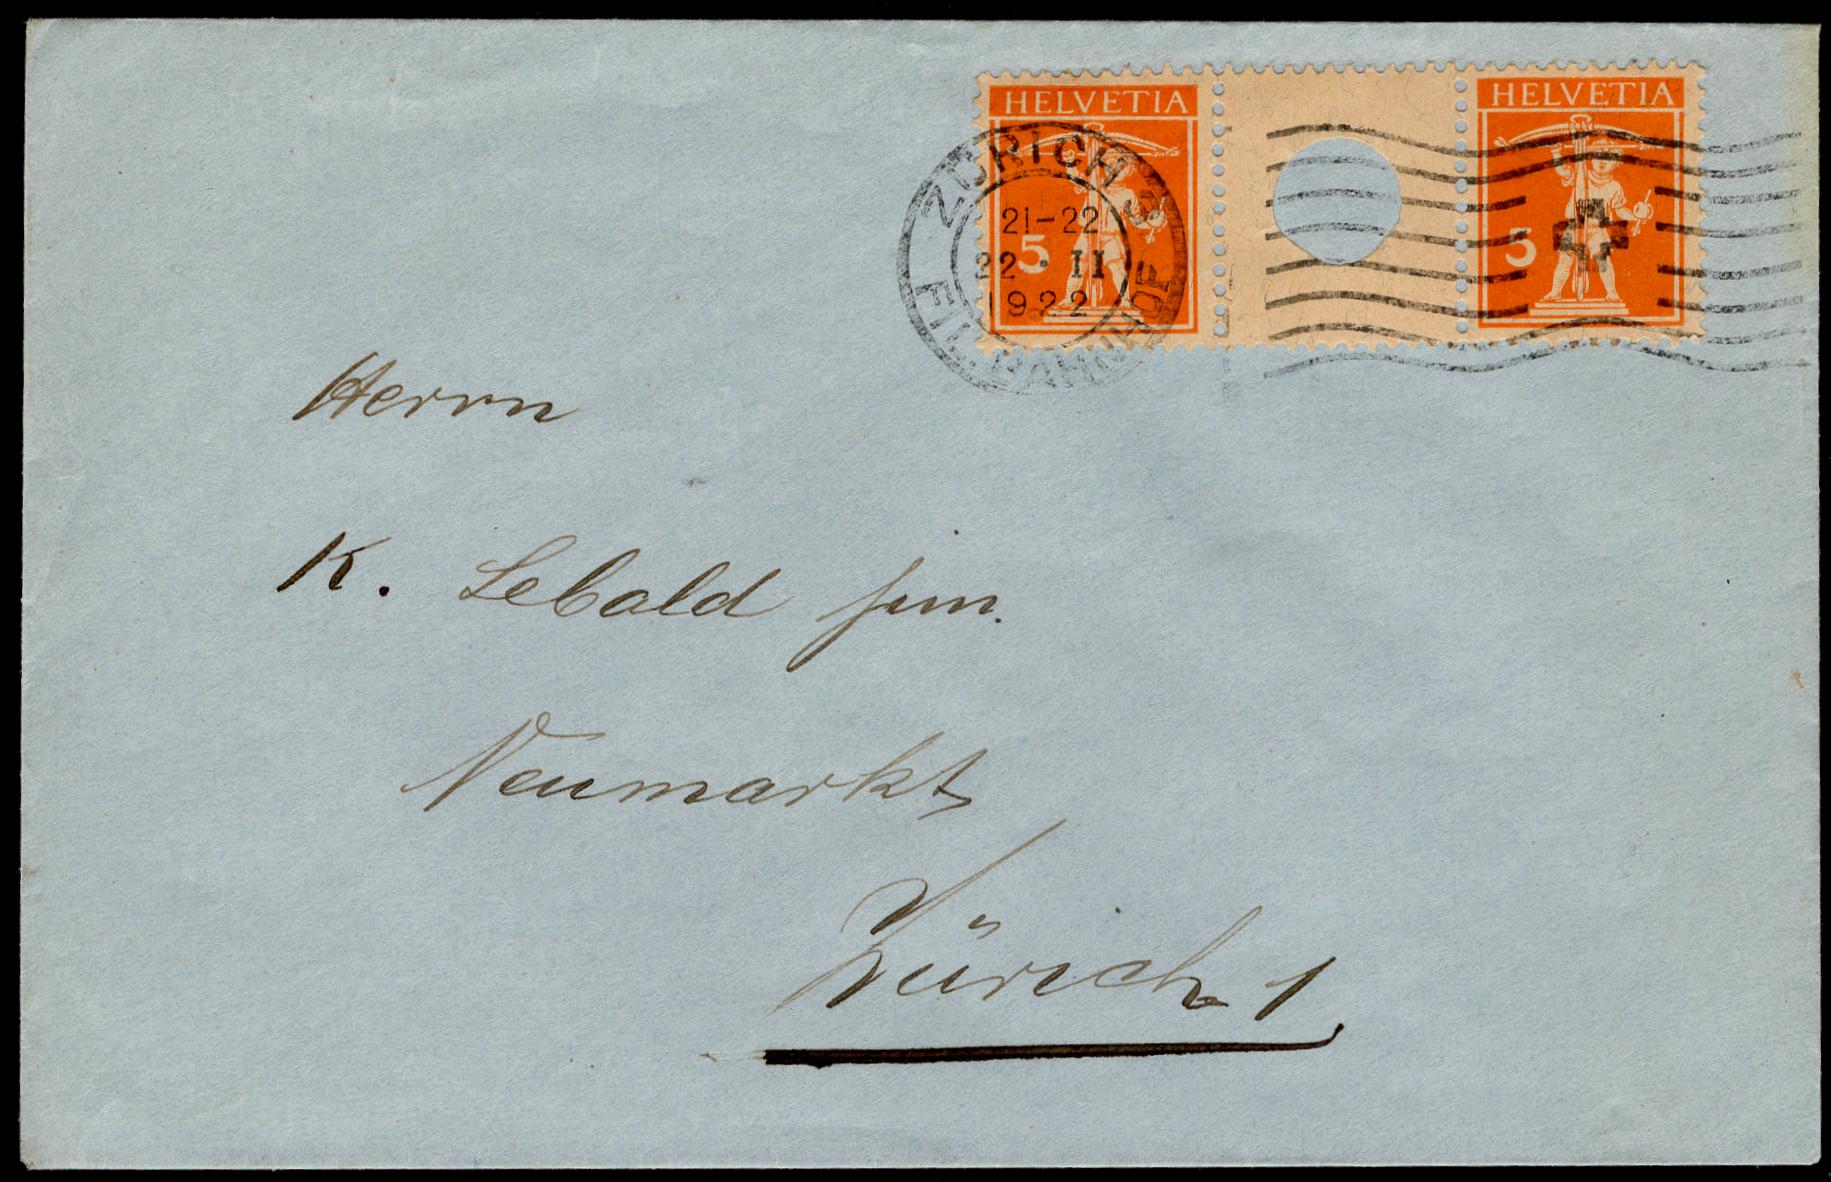 HELVETIA
5
HELVETIA
5
ZÜRICH
21-22
22·II
1922
FIL. BAHNHOF
Herrn
K. Sebald jun.
Neumarkt
Zürich 1